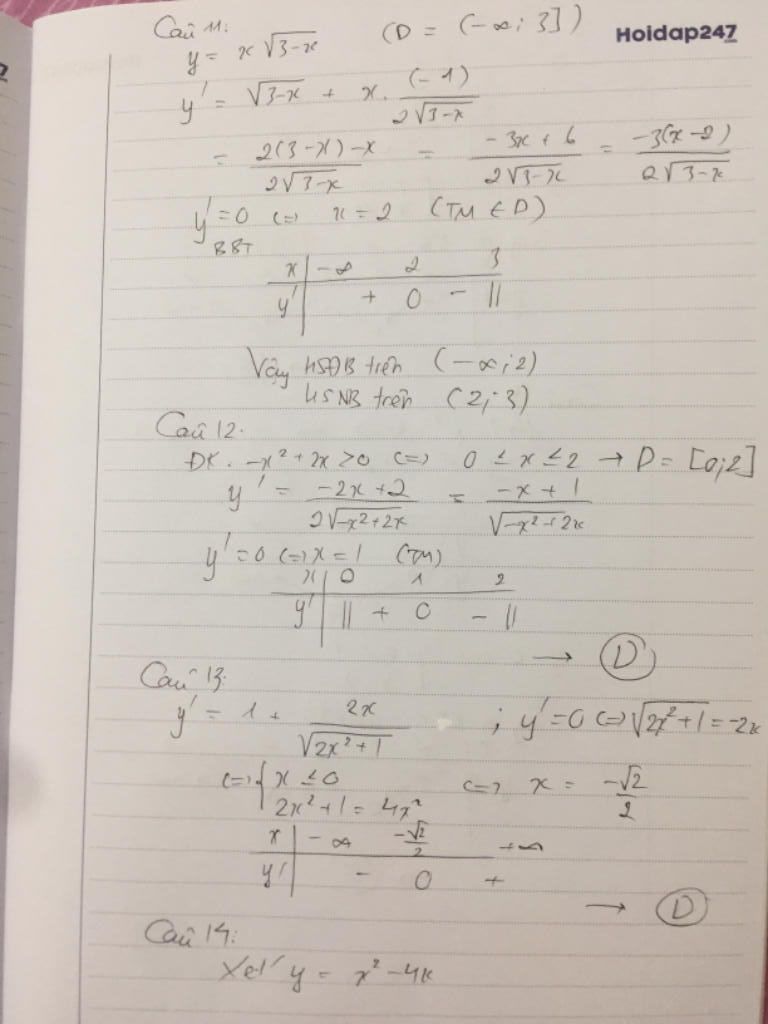 Câu 11:
Hoidap247
y = x√(3-x) (D = (-∞; 3])
y' = √(3-x) + x. (-1)/(2√(3-x))
= (2(3-x)-x)/(2√(3-x)) = (-3x+6)/(2√(3-x)) = (-3(x-2))/(2√(3-x))
y'=0 <=> x=2 (TM ∈ D)
BBT
x | -∞ 2 3
y' | + 0 - ||
Vậy HSĐB trên (-∞; 2)
HSNB trên (2; 3)
Câu 12.
ĐK. -x²+2x>0 <=> 0 ≤ x ≤ 2 → D = [0;2]
y' = (-2x+2)/(2√(-x²+2x)) = (-x+1)/(√(-x²+2x))
y'=0 <=> x=1 (TM)
x | 0 1 2
y' | || + 0 - ||
→ D
Câu 13:
y' = 1 + 2x/√(2x²+1) ; y'=0 <=> √(2x²+1) = -2x
<=> { x ≤ 0 <=> x = -√2/2
2x²+1 = 4x²
x | -∞ -√2/2 +∞
y' | - 0 +
→ D
Câu 14:
Xét y = x²-4x